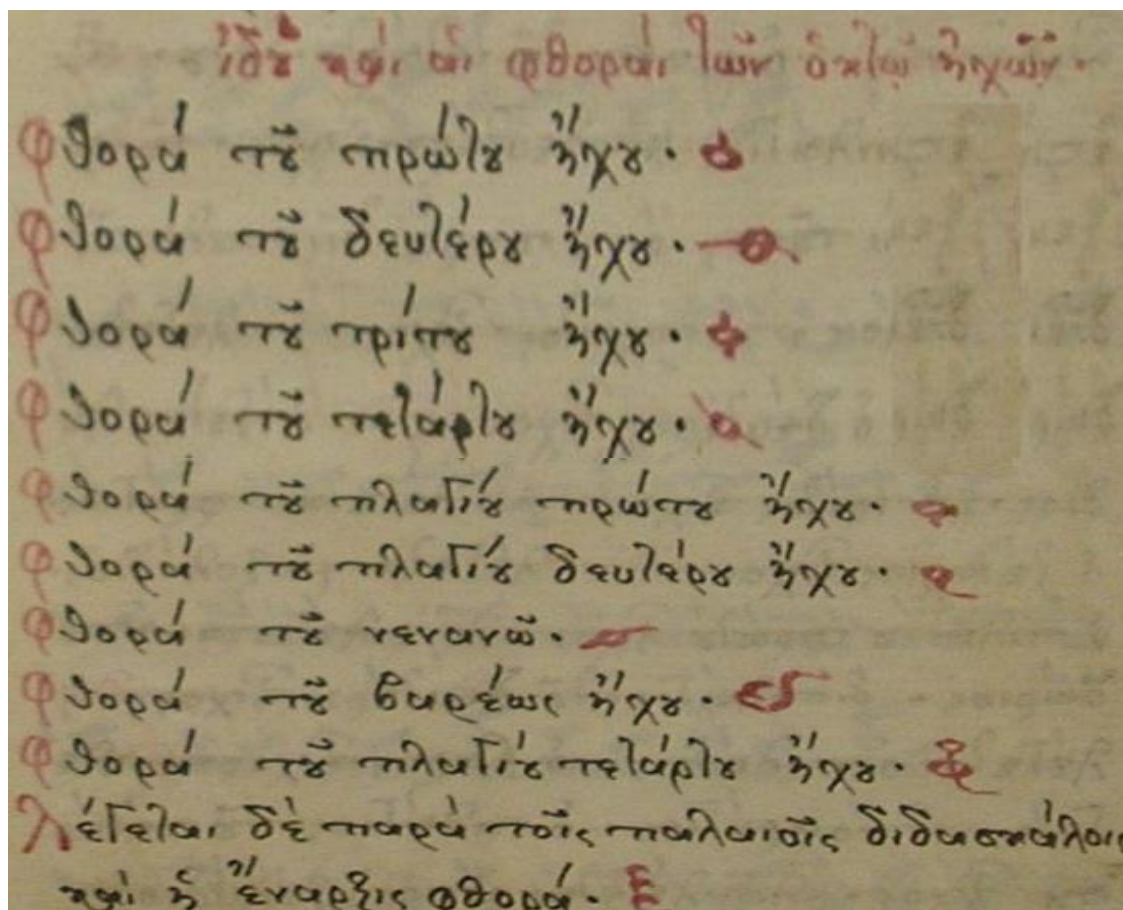 ἰδοὺ καὶ αἱ φθοραὶ τῶν ὀκτὼ ἤχων.
φθορά τοῦ πρώτου ἤχου.
φθορά τοῦ δευτέρου ἤχου.
φθορά τοῦ τρίτου ἤχου.
φθορά τοῦ τετάρτου ἤχου.
φθορά τοῦ πλαγίου πρώτου ἤχου.
φθορά τοῦ πλαγίου δευτέρου ἤχου.
φθορά τοῦ νενανῶ.
φθορά τοῦ βαρέως ἤχου.
φθορά τοῦ πλαγίου τετάρτου ἤχου.
λέγεται δὲ παρὰ τοῖς παλαιοῖς διδασκάλοις
καὶ ἡ ἔναρξις φθορά.